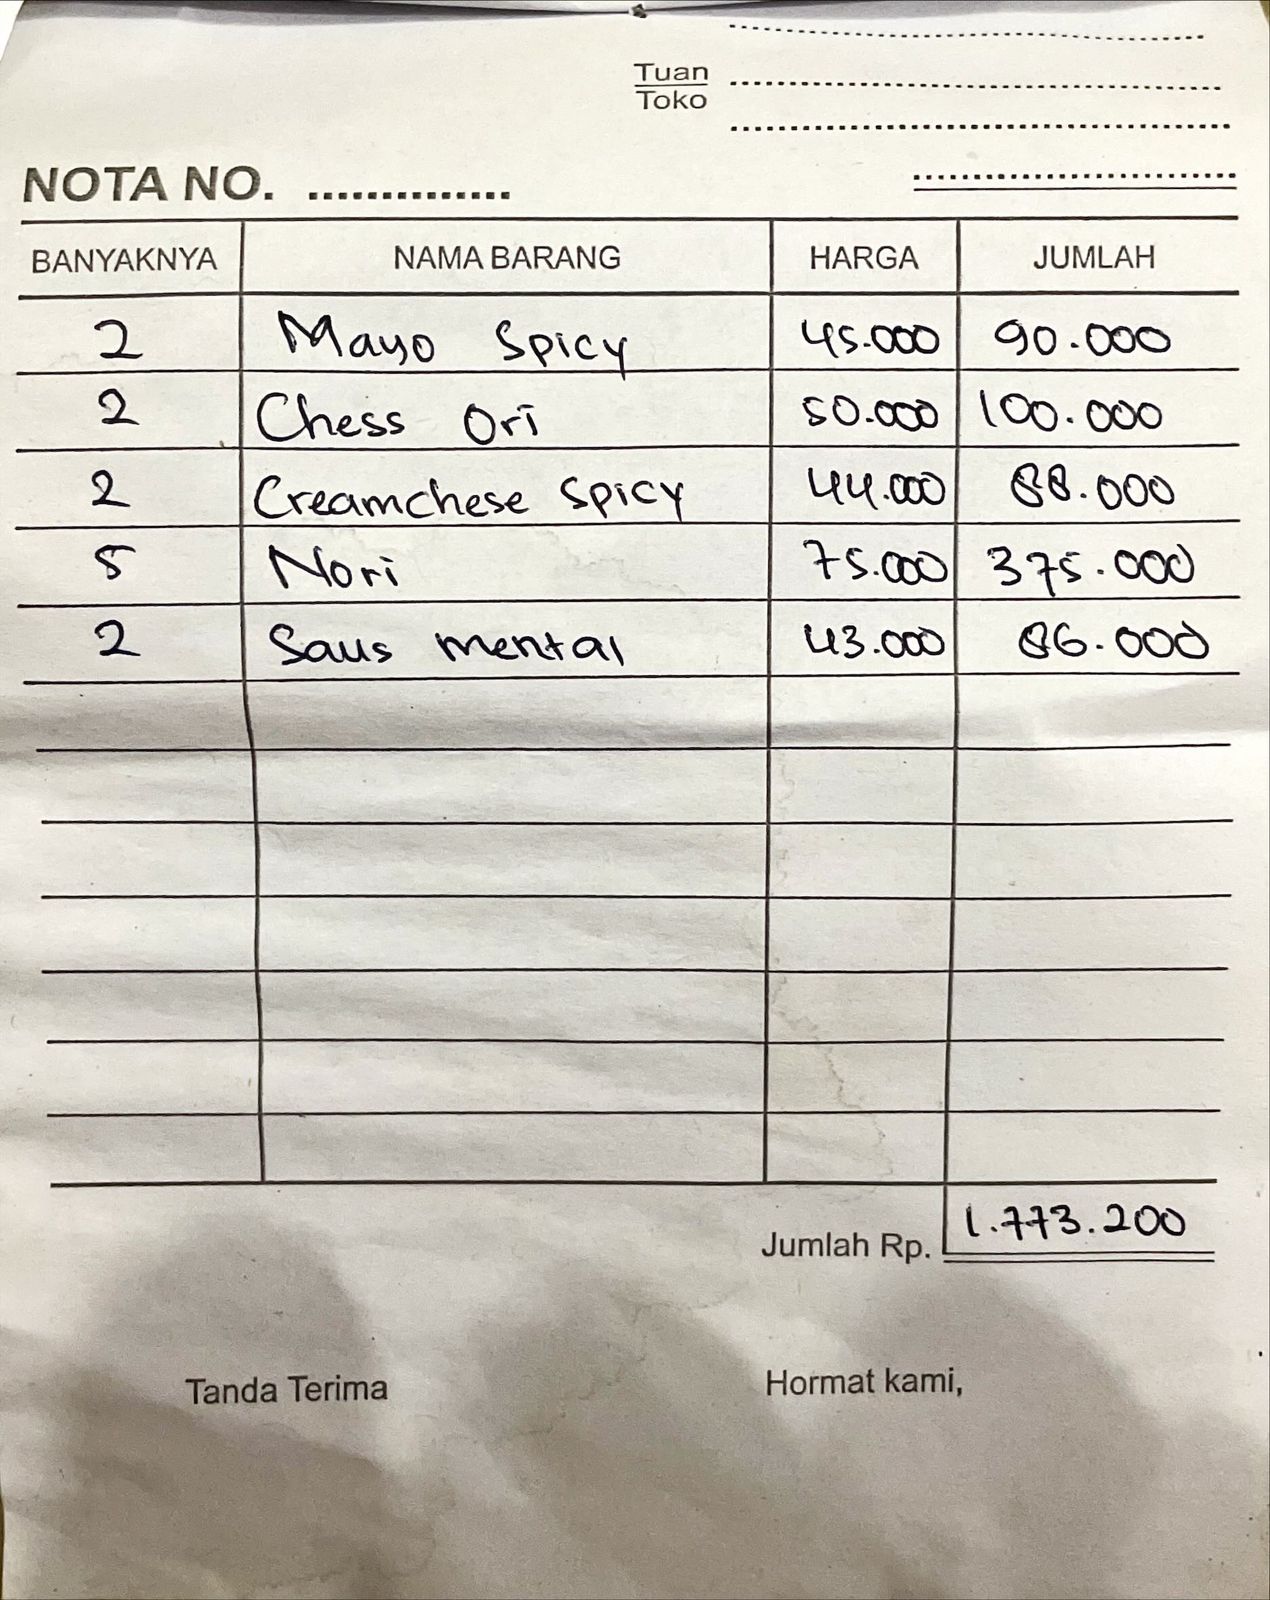 Tuan
Toko
NOTA NO. ..............
BANYAKNYA NAMA BARANG HARGA JUMLAH
2 Mayo Spicy 45.000 90.000
2 Chess Ori 50.000 100.000
2 Creamchese Spicy 44.000 88.000
5 Nori 75.000 375.000
2 Saus mental 43.000 86.000
Jumlah Rp. 1.773.200
Tanda Terima Hormat kami,